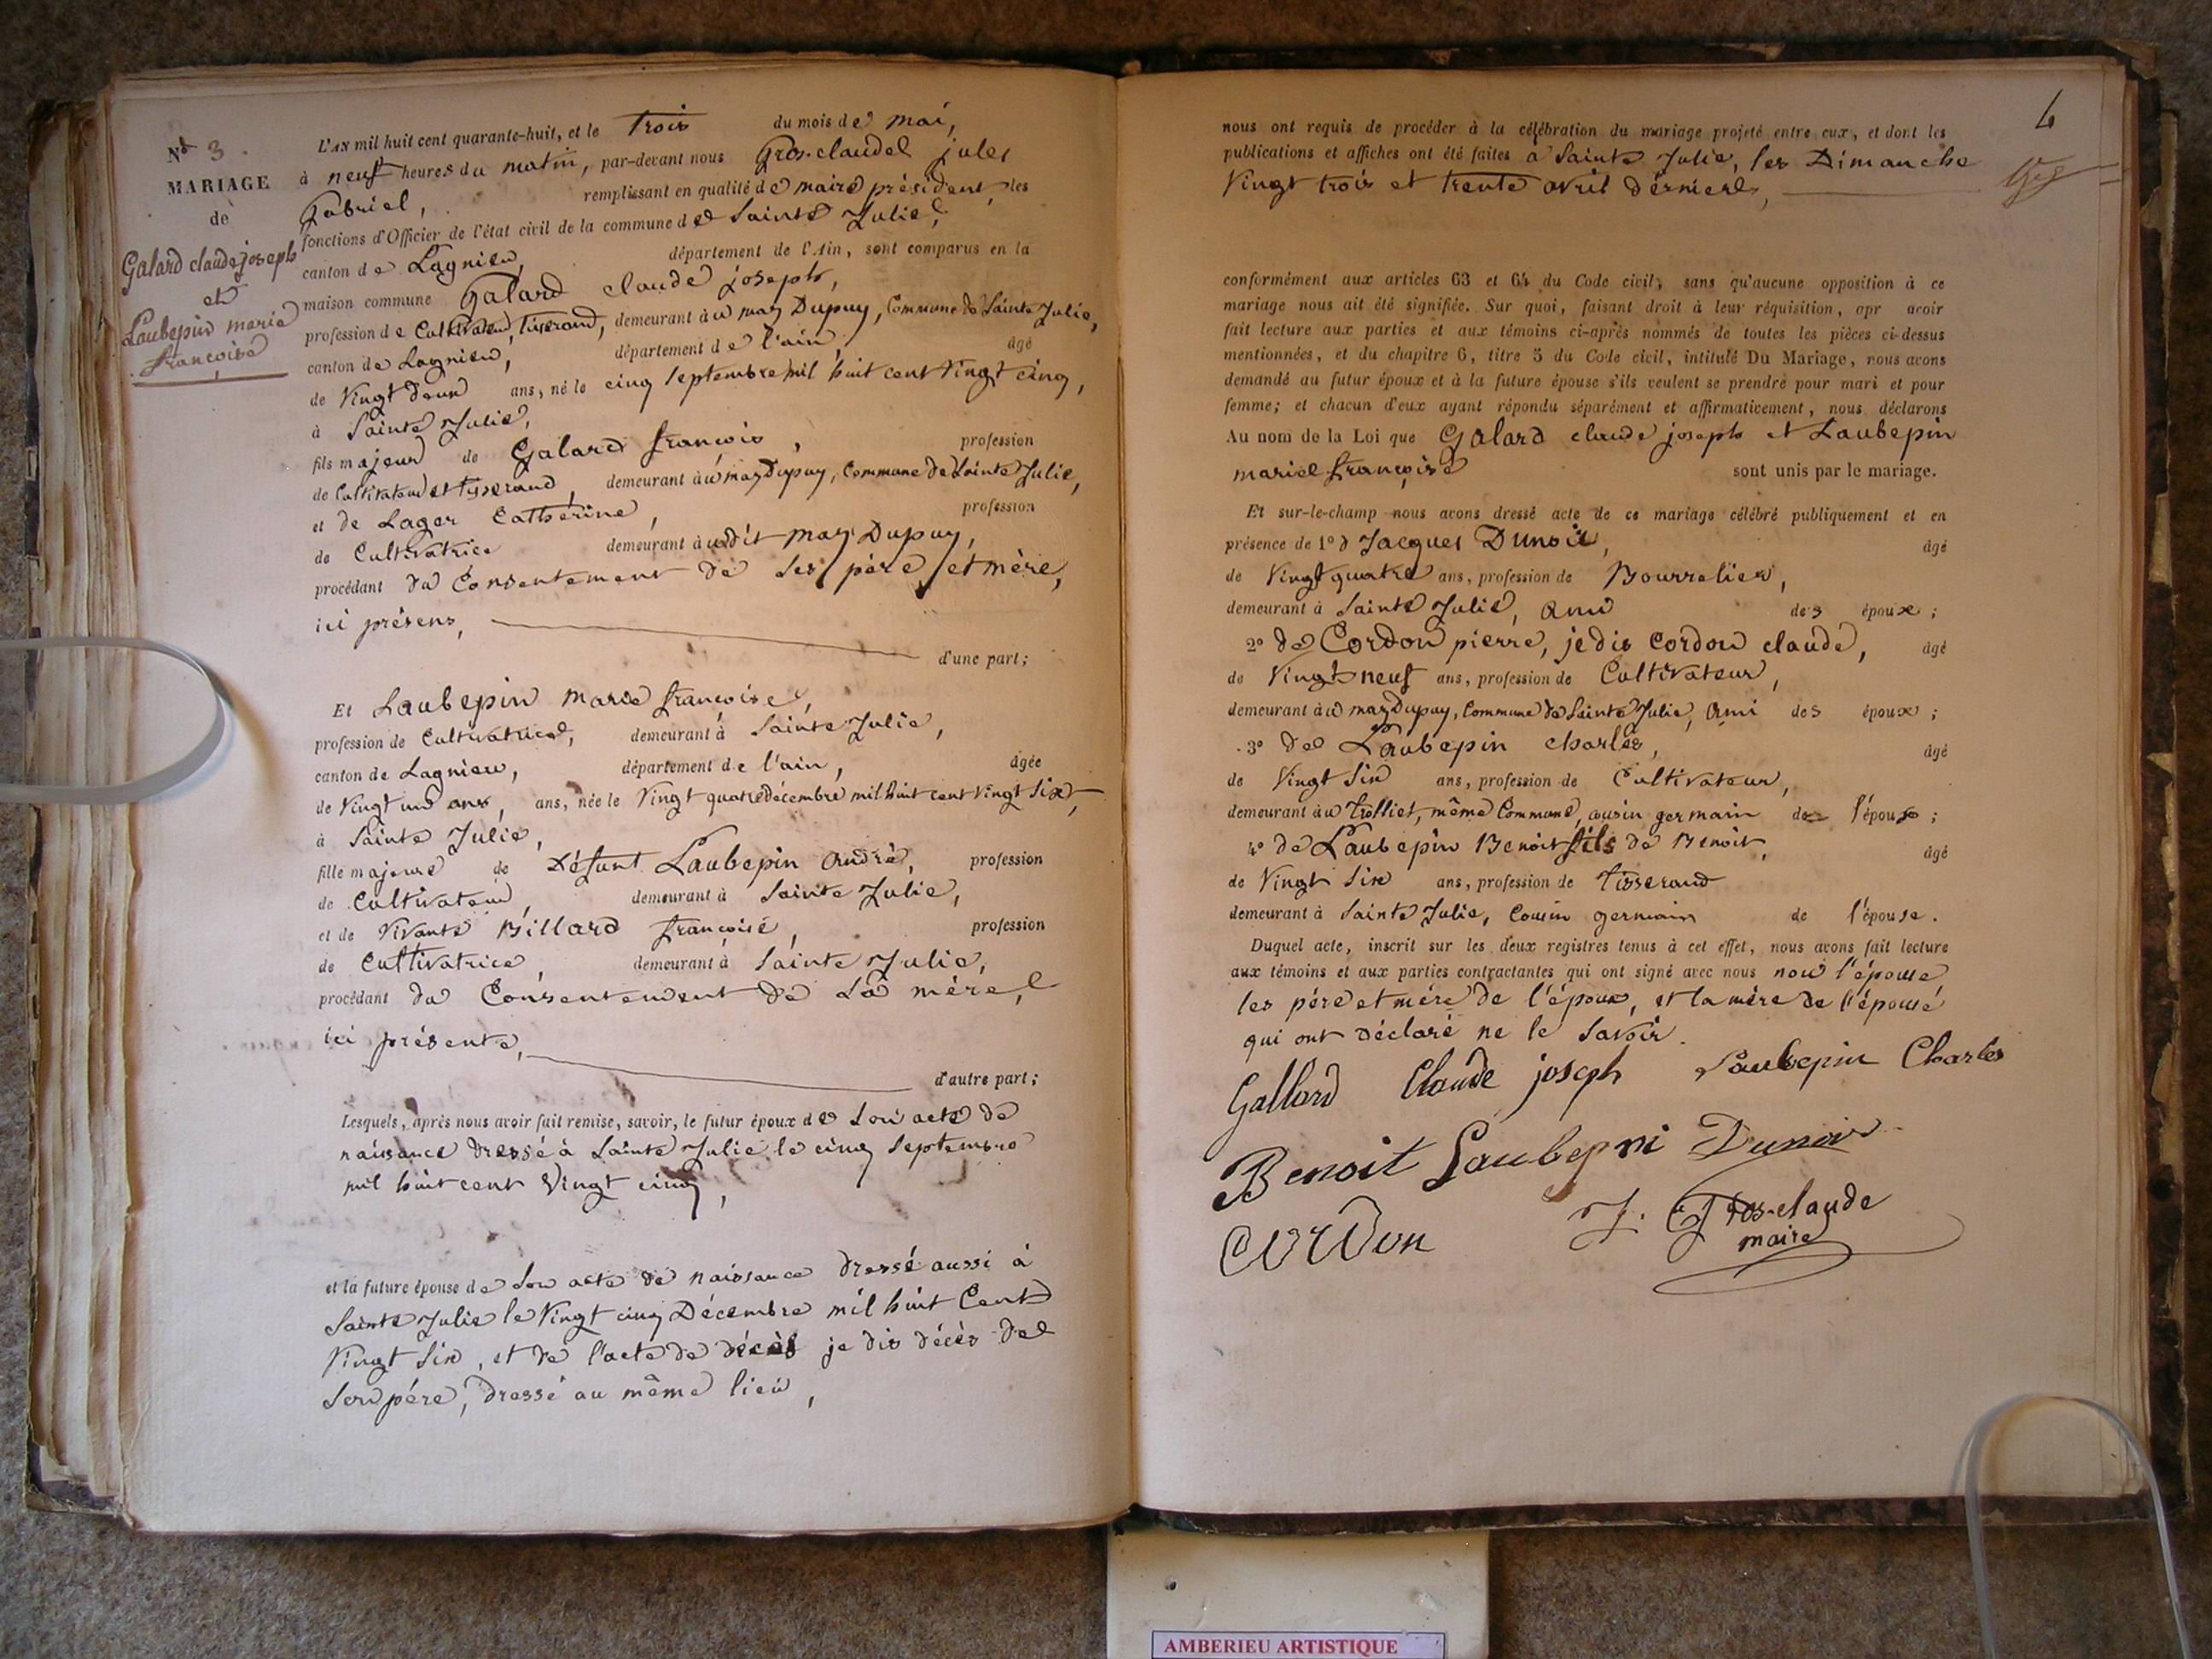 Nº 3.
MARIAGE
de
Galard claude joseph
et
Laubepin marie
françoise
L'AN mil huit cent quarante-huit, et le trois du mois de mai,
à neuf heures du matin, par-devant nous Gros-claude jules
Gabriel, remplissant en qualité de maire président, les
fonctions d'Officier de l'état civil de la commune de Sainte Julie,
canton de Lagnieu, département de l'Ain, sont comparus en la
maison commune Galard claude joseph,
profession de Cultivateur, tisserand, demeurant àu maz Dupuy, Commune de Sainte Julie,
canton de Lagnieu, département de l'ain, âgé
de Vingt deux ans, né le cinq Septembre mil huit cent vingt cinq,
à Sainte Julie,
fils majeur de Galard françois, profession
de Cultivateur et tisserand, demeurant àu maz Dupuy, Commune de Sainte Julie,
et de Lager Catherine, profession
de Cultivatrice demeurant àudit maz Dupuy,
procédant du Consentement de Ses père et mère,
ici présens,
d'une part;
Et Laubepin marie françoise,
profession de Cultivatrice, demeurant à Sainte Julie,
canton de Lagnieu, département de l'ain, âgée
de Vingt un ans, ans, née le Vingt quatre décembre mil huit cent vingt Six,
à Sainte Julie,
fille majeure de Défunt Laubepin André, profession
de Cultivateur, demeurant à Sainte Julie,
et de Vivante Billard françoise, profession
de Cultivatrice, demeurant à Sainte Julie,
procédant du Consentement de Sa mère,
ici présente,
d'autre part;
Lesquels, après nous avoir fait remise, savoir, le futur époux de Son acte de
naissance dressé à Sainte Julie le cinq Septembre
mil huit cent Vingt cinq,
et la future épouse de Son acte de naissance dressé aussi à
Sainte Julie le Vingt cinq Décembre mil huit Cent
Vingt Six, et de l'acte de décès je dis décès de
Son père, dressé au même lieu,
4
nous ont requis de procéder à la célébration du mariage projeté entre eux, et dont les
publications et affiches ont été faites à Sainte Julie, les Dimanche
Vingt trois et trente avril dernier,
conformément aux articles 63 et 64 du Code civil, sans qu'aucune opposition à ce
mariage nous ait été signifiée. Sur quoi, faisant droit à leur réquisition, apr avoir
fait lecture aux parties et aux témoins ci-après nommés de toutes les pièces ci-dessus
mentionnées, et du chapitre 6, titre 5 du Code civil, intitulé Du Mariage, nous avons
demandé au futur époux et à la future épouse s'ils veulent se prendre pour mari et pour
femme; et chacun d'eux ayant répondu séparément et affirmativement, nous déclarons
Au nom de la Loi que Galard claude joseph et Laubepin
marie françoise sont unis par le mariage.
Et sur-le-champ nous avons dressé acte de ce mariage célébré publiquement et en
présence de 1º d Jacques Dunoir, âgé
de Vingt quatre ans, profession de Bourrelier,
demeurant à Sainte Julie, Ami des époux;
2º de Cordon pierre, je dis Cordon claude, âgé
de Vingt neuf ans, profession de Cultivateur,
demeurant àu maz Dupuy, Commune de Sainte Julie, Ami des époux;
3º de Laubepin charles, âgé
de Vingt Six ans, profession de Cultivateur,
demeurant àu trolliet, même Commune, cousin germain de l'épouse;
4º de Laubepin Benoit fils de Benoit, âgé
de Vingt Six ans, profession de tisserand
demeurant à Sainte Julie, Cousin germain de l'épouse.
Duquel acte, inscrit sur les deux registres tenus à cet effet, nous avons fait lecture
aux témoins et aux parties contractantes qui ont signé avec nous non l'épouse
les père et mère de l'époux, et la mère de l'épouse
qui ont déclaré ne le Savoir.
Gallard Claude joseph Laubepin Charles
Benoit Laubepin Dunoir
Cordon J. Gros-claude
maire
AMBERIEU ARTISTIQUE